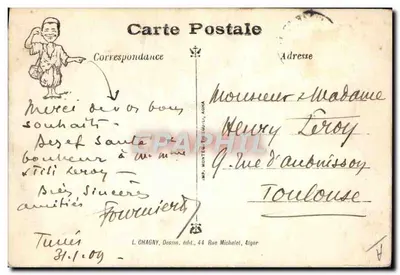 Carte Postale
Correspondance
Adresse
Merci de vos bons
souhaits.
santé
bonheur à
& Titi Leroy —
Bien sincères
amitiés
Fournier
Tunis
31.1.09
Monsieur & Madame
Henry Leroy
9. Rue d'aubuisson
Toulouse
L. CHAGNY, Dessin, édit., 44 Rue Michelet, Alger